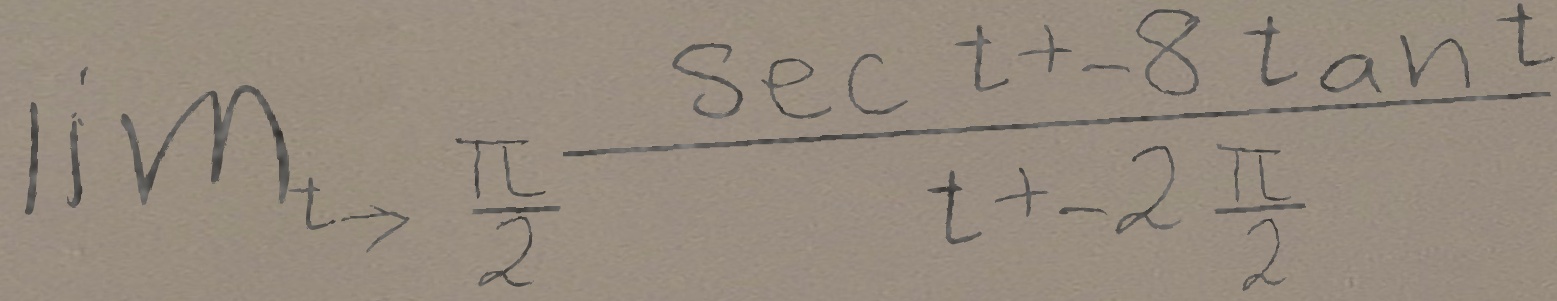 \lim_{t \to \frac{\pi}{2}} \frac{\sec t + -8 \tan t}{t + -2 \frac{\pi}{2}}